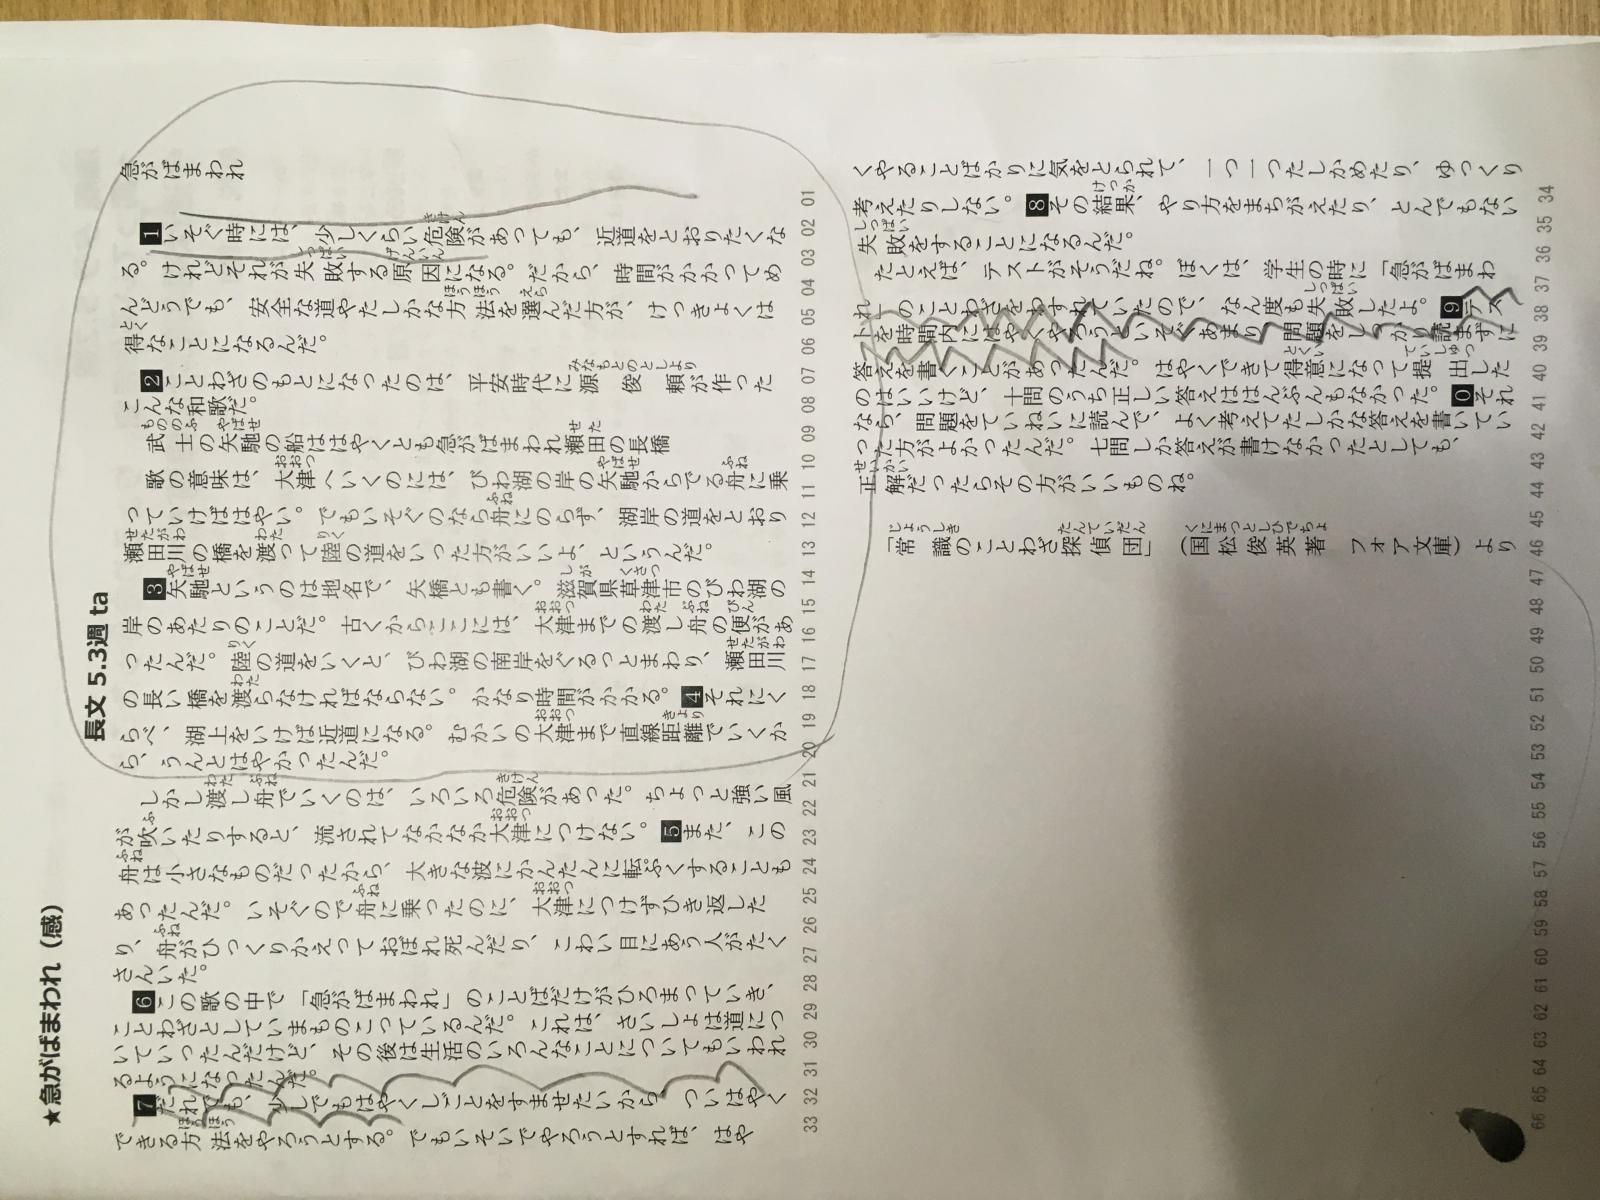 ★急がばまわれ（感）
長文 5.3週 ta
急がばまわれ
1いそぐ時には、少しくらい危険があっても、近道をとおりたくな
る。けれどそれが失敗する原因になる。だから、時間がかかってめ
んどうでも、安全な道やたしかな方法を選んだ方が、けっきょくは
得なことになるんだ。
2ことわざのもとになったのは、平安時代に源俊頼が作った
こんな和歌だ。
武士の矢馳の船ははやくとも急がばまわれ瀬田の長橋
歌の意味は、大津へいくのには、びわ湖の岸の矢馳からでる舟に乗
っていけばはやい。でもいそぐのなら舟にのらず、湖岸の道をとおり
瀬田川の橋を渡って陸の道をいった方がいいよ、というんだ。
3矢馳というのは地名で、矢橋とも書く。滋賀県草津市のびわ湖の
岸のあたりのことだ。古くからここには、大津までの渡し舟の便があ
ったんだ。陸の道をいくと、びわ湖の南岸をぐるっとまわり、瀬田川
の長い橋を渡らなければならない。かなり時間がかかる。4それにく
らべ、湖上をいけば近道になる。むかいの大津まで直線距離でいくか
ら、うんとはやかったんだ。
しかし渡し舟でいくのは、いろいろ危険があった。ちょっと強い風
が吹いたりすると、流されてなかなか大津につけない。5また、この
舟は小さなものだったから、大きな波にかんたんに転ぷくすることも
あったんだ。いそぐので舟に乗ったのに、大津につけずひき返した
り、舟がひっくりかえっておぼれ死んだり、こわい目にあう人がたく
さんいた。
6この歌の中で「急がばまわれ」のことばだけがひろまっていき、
ことわざとしていまものこっているんだ。これは、さいしょは道につ
いていったんだけど、その後は生活のいろんなことについてもいわれ
るようになったんだ。
7だれでも、少しでもはやくしごとをすませたいから、ついはやく
できる方法をやろうとする。でもいそいでやろうとすれば、はや
くやることばかりに気をとられて、一つ一つたしかめたり、ゆっくり
考えたりしない。8その結果、やり方をまちがえたり、とんでもない
失敗をすることになるんだ。
たとえば、テストがそうだね。ぼくは、学生の時に「急がばまわ
れ」のことわざをわすれていたので、なん度も失敗したよ。9テス
トを時間内にはやくやろうといそぐあまり、問題をしっかり読まずに
答えを書いことがあったんだ。はやくできて得意になって提出した
のはいいけど、十問のうち正しい答えははんぶんもなかった。0それ
なら、問題をていねいに読んで、よく考えてたしかな答えを書いてい
った方がよかったんだ。七問しか答えが書けなかったとしても、
正解だったらその方がいいものね。
「常識のことわざ探偵団」（国松俊英著　フォア文庫）より
01 02 03 04 05 06 07 08 09 10 11 12 13 14 15 16 17 18 19 20 21 22 23 24 25 26 27 28 29 30 31 32 33
34 35 36 37 38 39 40 41 42 43 44 45 46 47 48 49 50 51 52 53 54 55 56 57 58 59 60 61 62 63 64 65 66